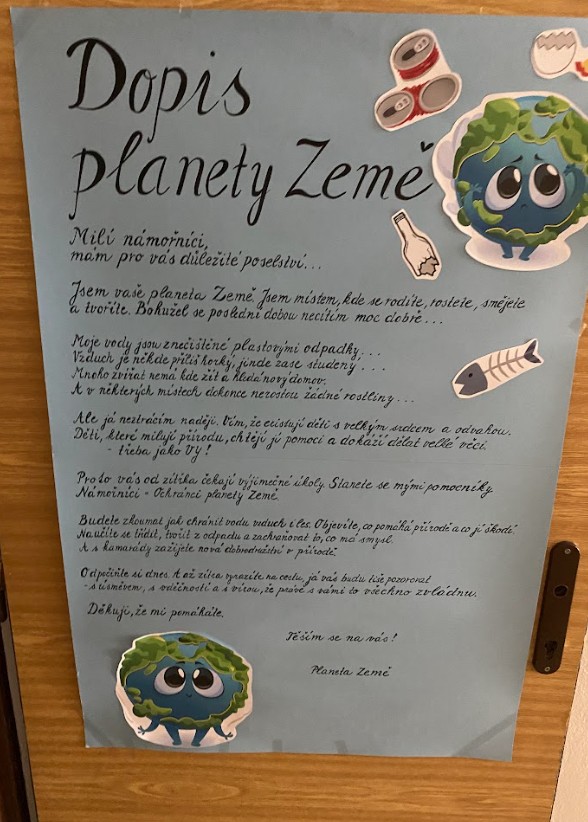 Dopis
planety Země
Milí námořníci,
mám pro vás důležité poselství...
Jsem vaše planeta Země. Jsem místem, kde se rodíte, rostete, smějete
a tvoříte. Bohužel se poslední dobou necítím moc dobře...
Moje vody jsou znečištěné plastovými odpadky...
Vzduch je někde příliš horký, jinde zase studený...
Mnoho zvířat nemá kde žít a hledá nový domov.
A v některých místech dokonce nerostou žádné rostliny...
Ale já neztrácím naději. Vím, že existují děti s velkým srdcem a odvahou.
Děti, které milují přírodu, chtějí jí pomoci a dokáží dělat velké věci.
- třeba jako Vy!
Proto vás od zítřka čekají výjimečné úkoly. Stanete se mými pomocníky
Námořníci - Ochránci planety Země.
Budete zkoumat jak chránit vodu vzduch i les. Objevíte, co pomáhá přírodě a co jí škodí.
Naučíte se třídit, tvořit z odpadu a zachraňovat to, co má smysl.
A s kamarády zažijete nová dobrodružství v přírodě
Odpočiňte si dnes. A až zítra vyrazíte na cestu, já vás budu tiše pozorovat
- s úsměvem, s vděčností a s vírou, že právě s vámi to všechno zvládnu.
Děkuji, že mi pomáháte.
Těším se na vás!
Planeta Země